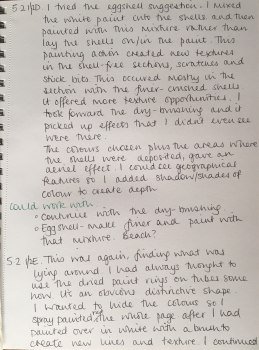 5.21/2D. I tried the eggshell suggestion. I mixed
the white paint into the shells and then
painted with this mixture rather than
lay the shells on/in the paint. This
painting action created new textures
in the shell-free sections, scratches and
stick bits. This occured mostly in the
section with the finer-crushed shells
it offered more texture opportunities. I
took forward the dry-brushing and it
picked up effects that I didn't even see
were there.
The colours chosen plus the areas where
the shells were deposited, gave an
aerial effect. I could see geographical
features so I added shadow/shades of
colour to create depth.
Could work with
• continue with the dry-brushing
• Eggshell - make finer and paint with
that mixture. Beach?
5.2 1/2E. This was again, finding what was
lying around. I had always thought to
use the dried paint rings on tubes some
how. It's an obvious distinctive shape.
I wanted to hide the colour so I
spray painted the whole page after I had
painted over in white with a brush to
create new lines and texture. I continued